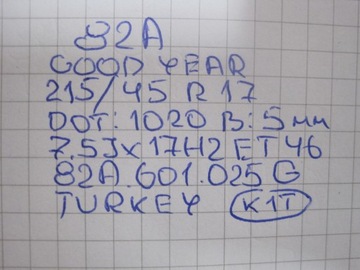 82A
GOOD YEAR
215/45 R 17
DOT: 1020 B: 5 мм
7.5Jx17H2 ET46
82A.601.025 G
TURKEY K1T